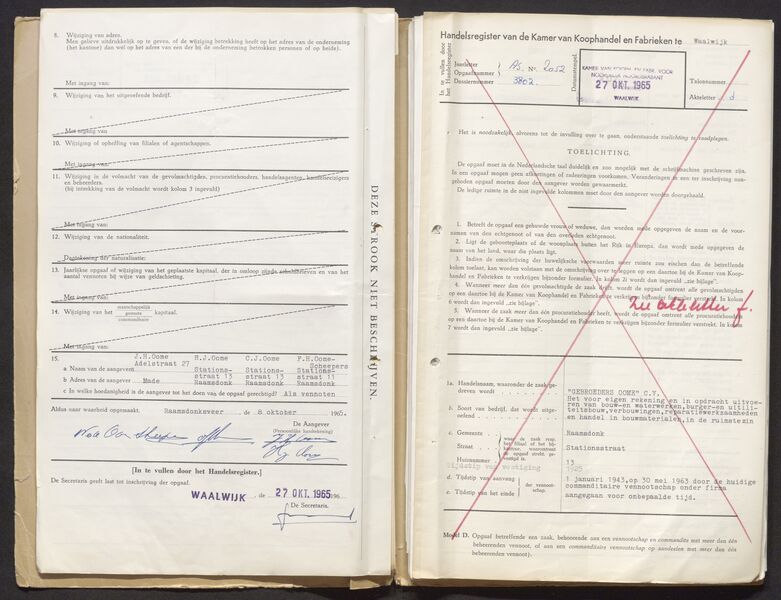 8. Wijziging van adres.
Men gelieve uitdrukkelijk op te geven, of de wijziging betrekking heeft op het adres van de onderneming
(het kantoor) dan wel op het adres van een der bij de onderneming betrokken personen of op beide).
Met ingang van:
9. Wijziging van het uitgeoefende bedrijf.
Met ingang van
10. Wijziging of opheffing van filialen of agentschappen.
Met ingang van:
11. Wijziging in de volmacht van de gevolmachtigden, procuratiehouders, handelsagenten, handelsreizigers
en beheerders.
(bij intrekking van de volmacht wordt kolom 3 ingevuld)
Met ingang van:
12. Wijziging van de nationaliteit.
Dagtekening der naturalisatie:
13. Jaarlijkse opgaaf of wijziging van het geplaatste kapitaal, der in omloop zijnde schuldbrieven en van het
aantal vennoten bij wijze van geldschieting.
Met ingang van:
14. Wijziging van het maatschappelijk geplaatst commanditaire kapitaal.
Met ingang van:
15. J.H.Oome H.J.Oome C.J.Oome F.H.Oome-
Adelstraat 27 Stations- Stations- Scheepers
a Naam van de aangever straat 13 straat 13 Stations-
straat 11
b Adres van de aangever Made Raamsdonk Raamsdonk Raamsdonk
c In welke hoedanigheid is de aangever tot het doen van de opgaaf gerechtigd? Als vennoten
Aldus naar waarheid opgemaakt. Raamsdonksveer, de 8 oktober 1965.
De Aangever
(Persoonlijke handtekening)
[In te vullen door het Handelsregister.]
De Secretaris geeft last tot inschrijving der opgaaf.
WAALWIJK, de 27 OKT. 1965 196
De Secretaris.
DEZE STROOK NIET BESCHRIJVEN.
Handelsregister van de Kamer van Koophandel en Fabrieken te Waalwijk
In te vullen door het Handelsregister
Jaarletter
Opgaafnummer AS. No. 2052
Dossiernummer 3802.
Documentstempel.
KAMER VAN KOOPH. EN FABR. VOOR
NOORDELIJK NOORD-BRABANT
27 OKT. 1965
WAALWIJK
Talonnummer
Akteletter d
Het is noodzakelijk, alvorens tot de invulling over te gaan, onderstaande toelichting te raadplegen.
TOELICHTING.
De opgaaf moet in de Nederlandsche taal duidelijk en zoo mogelijk met de schrijfmachine geschreven zijn.
In een opgaaf mogen geen afkortingen of radeeringen voorkomen. Veranderingen in een ter inschrijving aan-
geboden opgaaf moeten door den aangever worden gewaarmerkt.
De ledige ruimte in de niet ingevulde kolommen moet door den aangever worden doorgehaald.
1. Betreft de opgaaf een gehuwde vrouw of weduwe, dan worden mede opgegeven de naam en de voor-
namen van den echtgenoot of van den overleden echtgenoot.
2. Ligt de geboorteplaats of de woonplaats buiten het Rijk in Europa, dan wordt mede opgegeven de
naam van het land, waar die plaats ligt.
3. Indien de omschrijving der huwelijksche voorwaarden meer ruimte zou eischen dan de betreffende
kolom toelaat, kan worden volstaan met de omschrijving over te leggen op een daartoe bij de Kamer van Koop-
handel en Fabrieken te verkrijgen bijzonder formulier. In kolom 2i wordt dan ingevuld „zie bijlage".
4. Wanneer meer dan één gevolmachtigde de zaak drijft, wordt de opgaaf omtrent alle gevolmachtigden
op een daartoe bij de Kamer van Koophandel en Fabrieken te verkrijgen bijzonder formulier gesteld. In kolom
6 wordt dan ingevuld „zie bijlage".
5. Wanneer meer dan één procuratiehouder de zaak heeft, wordt de opgaaf omtrent alle procuratiehouders
op een daartoe bij de Kamer van Koophandel en Fabrieken te verkrijgen bijzonder formulier gesteld. In kolom
7 wordt dan ingevuld „zie bijlage".
Zie akteletter f.
1a. Handelsnaam, waaronder de zaak ge-
dreven wordt "GEBROEDERS OOME" C.V.
b. Soort van bedrijf, dat wordt uitge-
oefend
Het voor eigen rekening en in opdracht uitvoe-
ren van bouw-en waterwerken, burger-en utili-
teitsbouw, verbouwingen, reparatiewerkzaamheden
en handel in bouwmaterialen, in de ruimstezin
c. Gemeente Raamsdonk
Straat Stationsstraat
Huisnummer 13
Tijdstip van vestiging 1925
d. Tijdstip van aanvang
e. Tijdstip van het einde
der vennoot-
schap.
1 januari 1943, op 30 mei 1963 door de huidige
commanditaire vennootschap onder firma
aangegaan voor onbepaalde tijd.
Model D. Opgaaf betreffende een zaak, behoorende aan een vennootschap en commandite met meer dan één
beheerenden vennoot, of aan een commanditaire vennootschap op aandeelen met meer dan één
beheerenden vennoot).